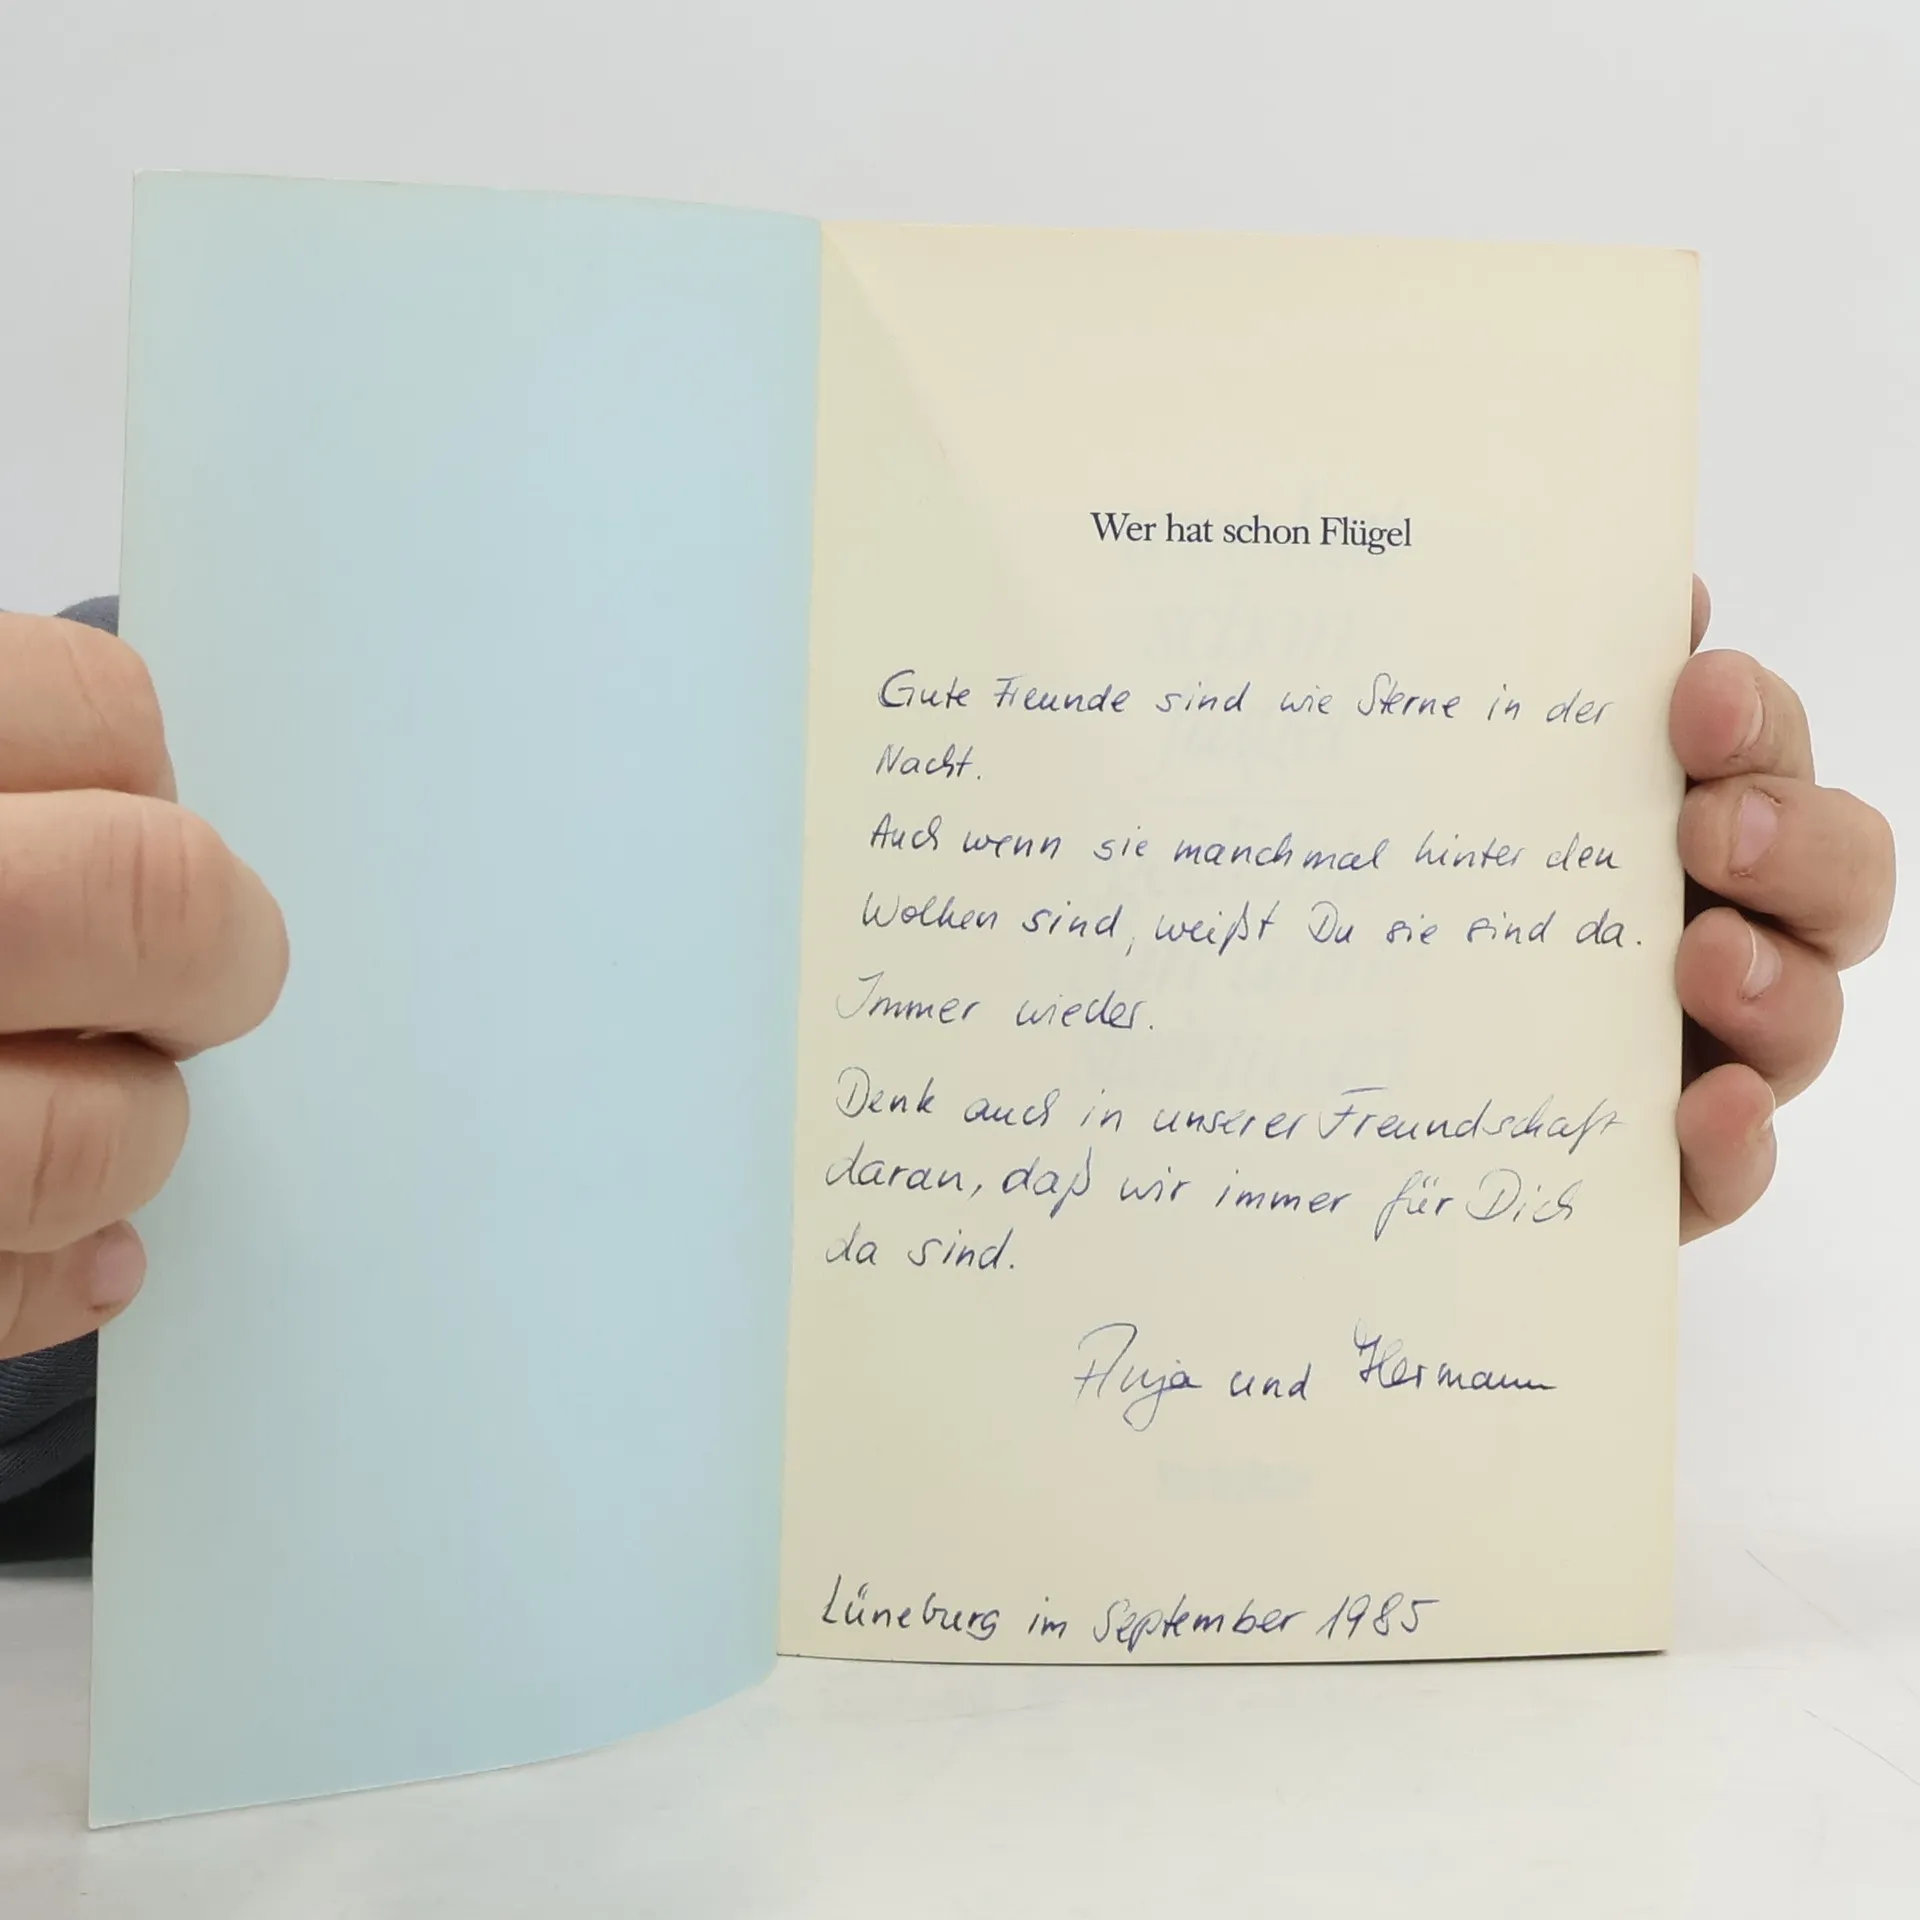 Wer hat schon Flügel
Gute Freunde sind wie Sterne in der
Nacht.
Auch wenn sie manchmal hinter den
Wolken sind, weißt Du sie sind da.
Immer wieder.
Denk auch in unserer Freundschaft
daran, daß wir immer für Dich
da sind.
Anja und Hermann
Lüneburg im September 1985